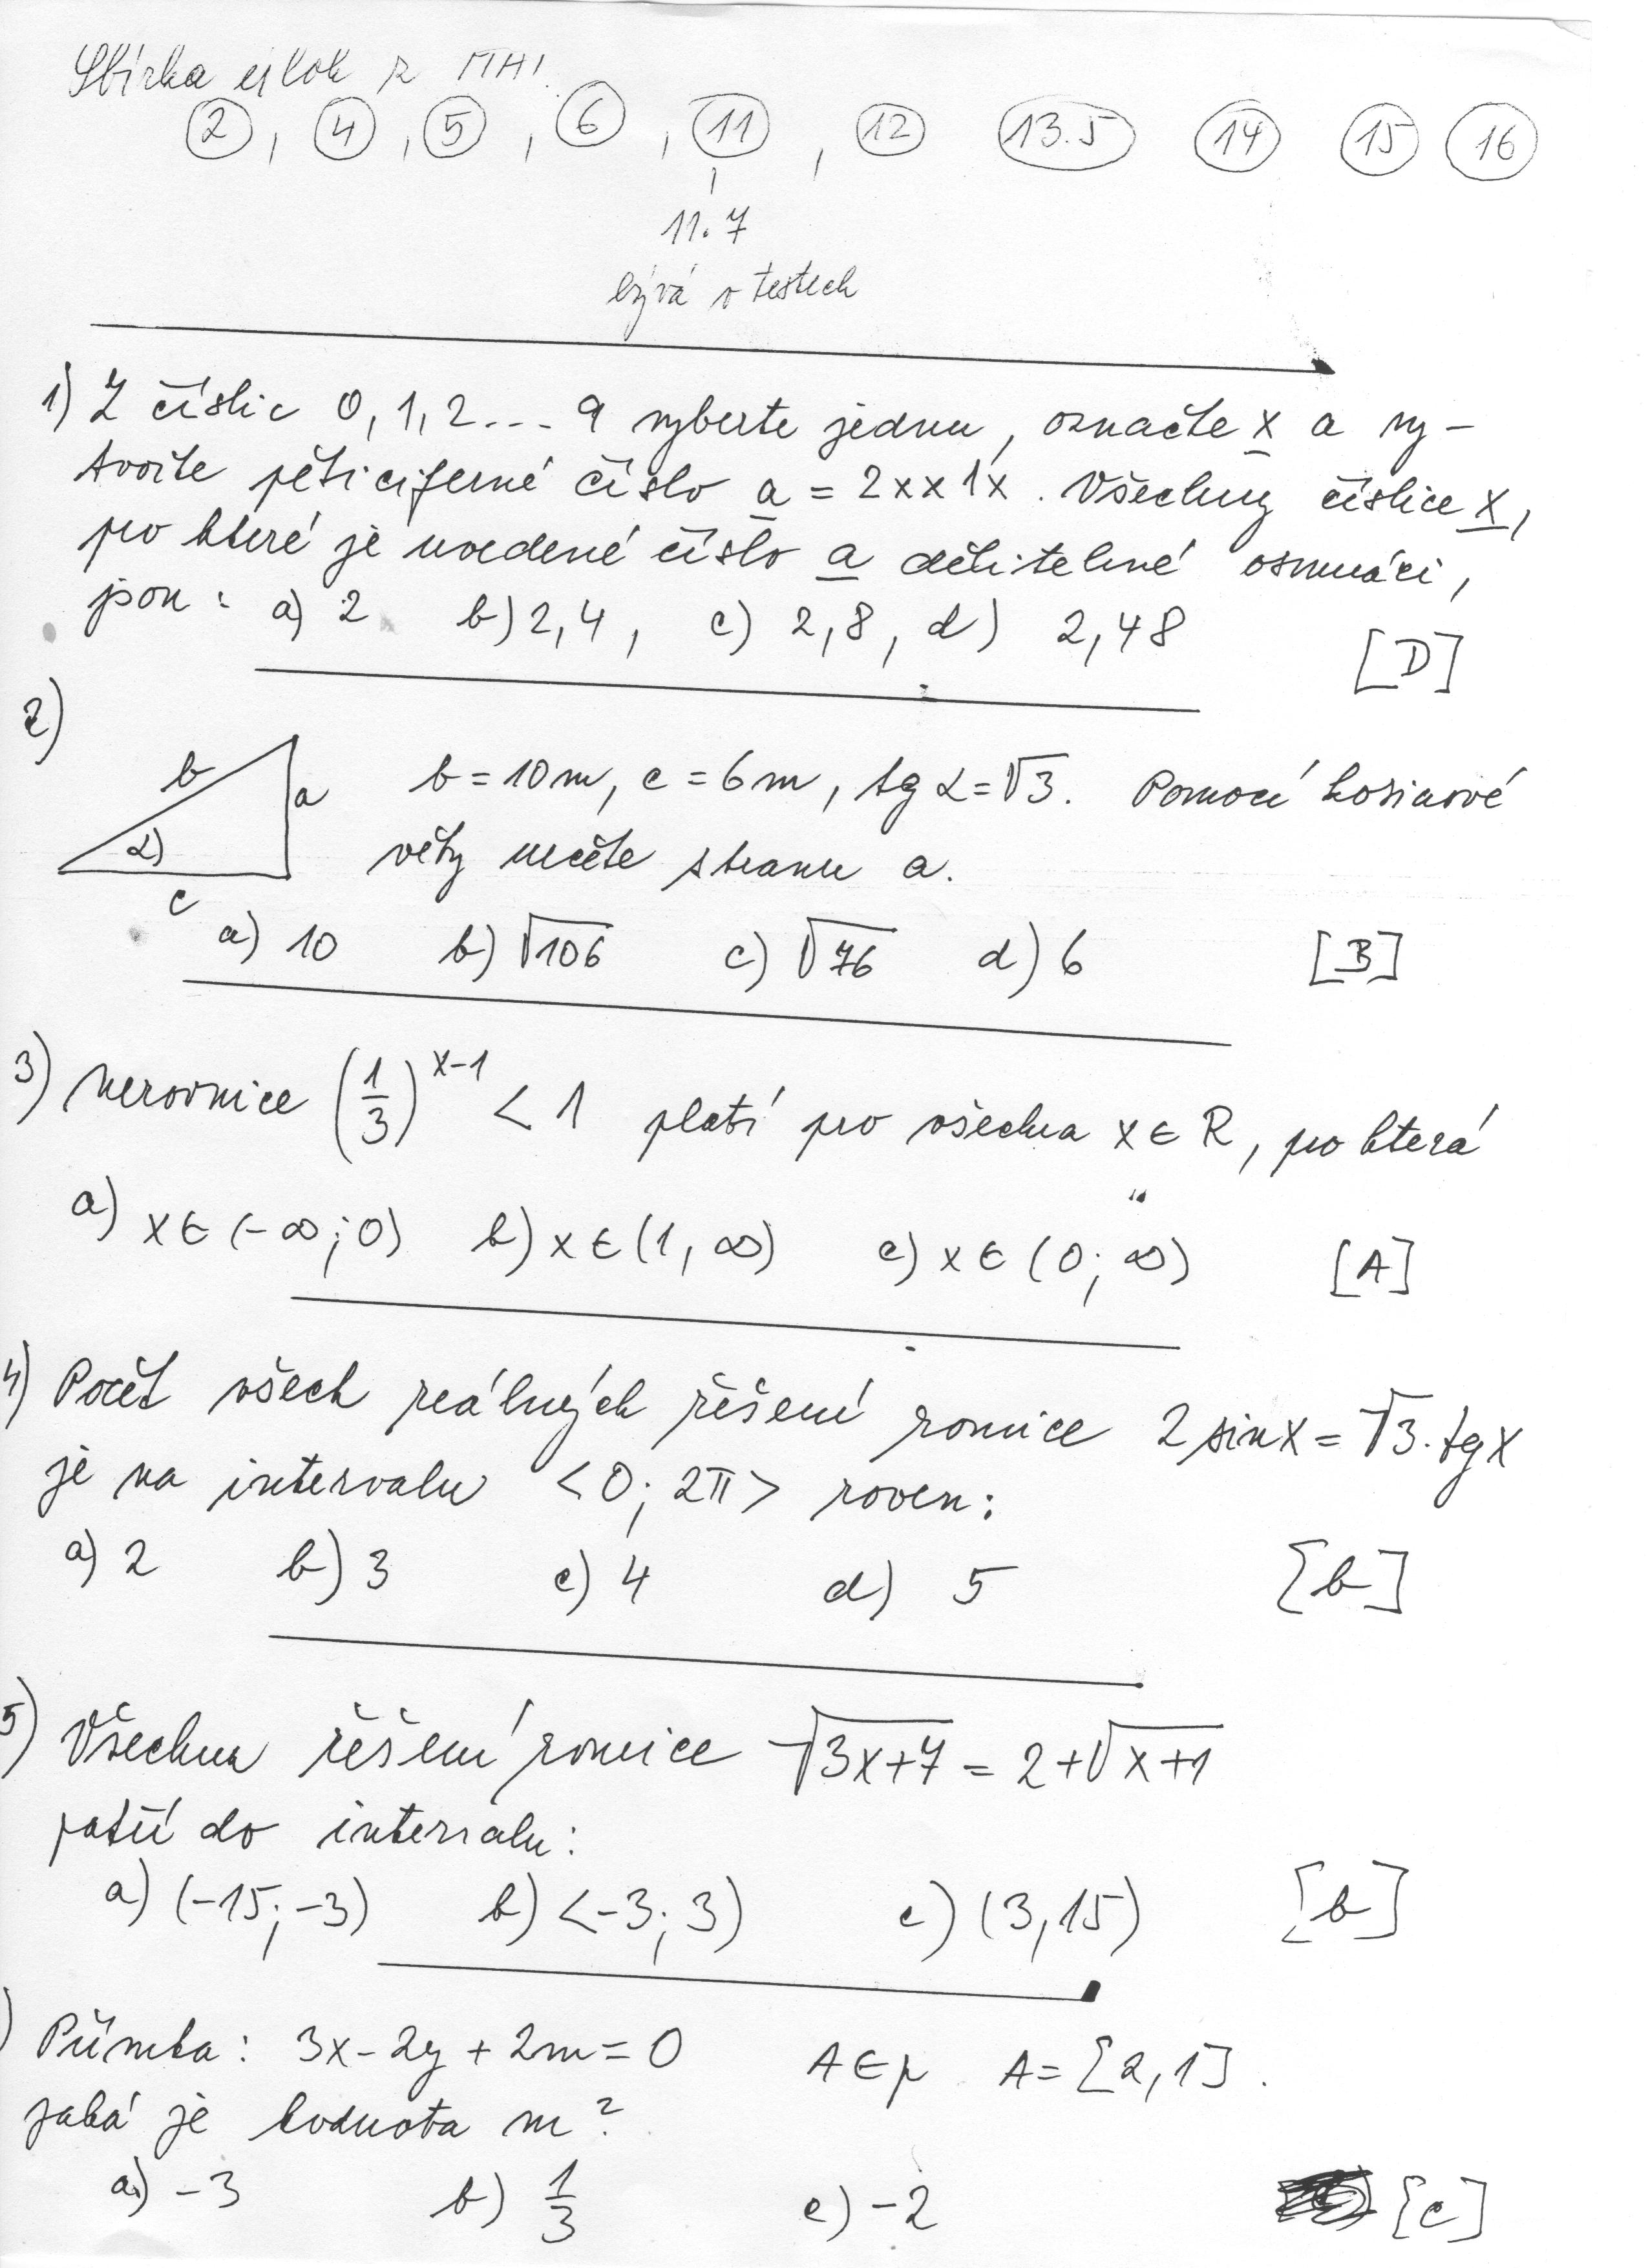 Sbírka úloh z MA1
2, 4, 5, 6, 11, 12 13.5 14 15 16
11.7
bývá v testech
1) Z číslic 0, 1, 2... 9 vyberte jednu, označte x a vy-
tvořte pěticiferné číslo a = 2xx1x. Všechny číslice x,
pro které je uvedené číslo a dělitelné osmnácti,
jsou: a) 2 b) 2,4, c) 2,8, d) 2,48 [D]
2)
b a α c
b = 10m, c = 6m, tg α = √3. Pomocí kosinové
věty určete stranu a.
a) 10 b) √106 c) √76 d) 6 [B]
3) Nerovnice (1/3)^(x-1) < 1 platí pro všechna x ∈ R, pro která
a) x ∈ (-∞; 0) b) x ∈ (1, ∞) c) x ∈ (0; ∞) [A]
4) Počet všech reálných řešení rovnice 2 sin x = √3 . tg x
je na intervalu <0; 2π> roven:
a) 2 b) 3 c) 4 d) 5 [b]
5) Všechna řešení rovnice √(3x+7) = 2+√(x+1)
patří do intervalu:
a) (-15; -3) b) <-3; 3) c) (3, 15) [b]
) Přímka: 3x - 2y + 2m = 0 A ∈ p A = [2, 1].
jaká je hodnota m?
a) -3 b) 1/3 c) -2 [c]